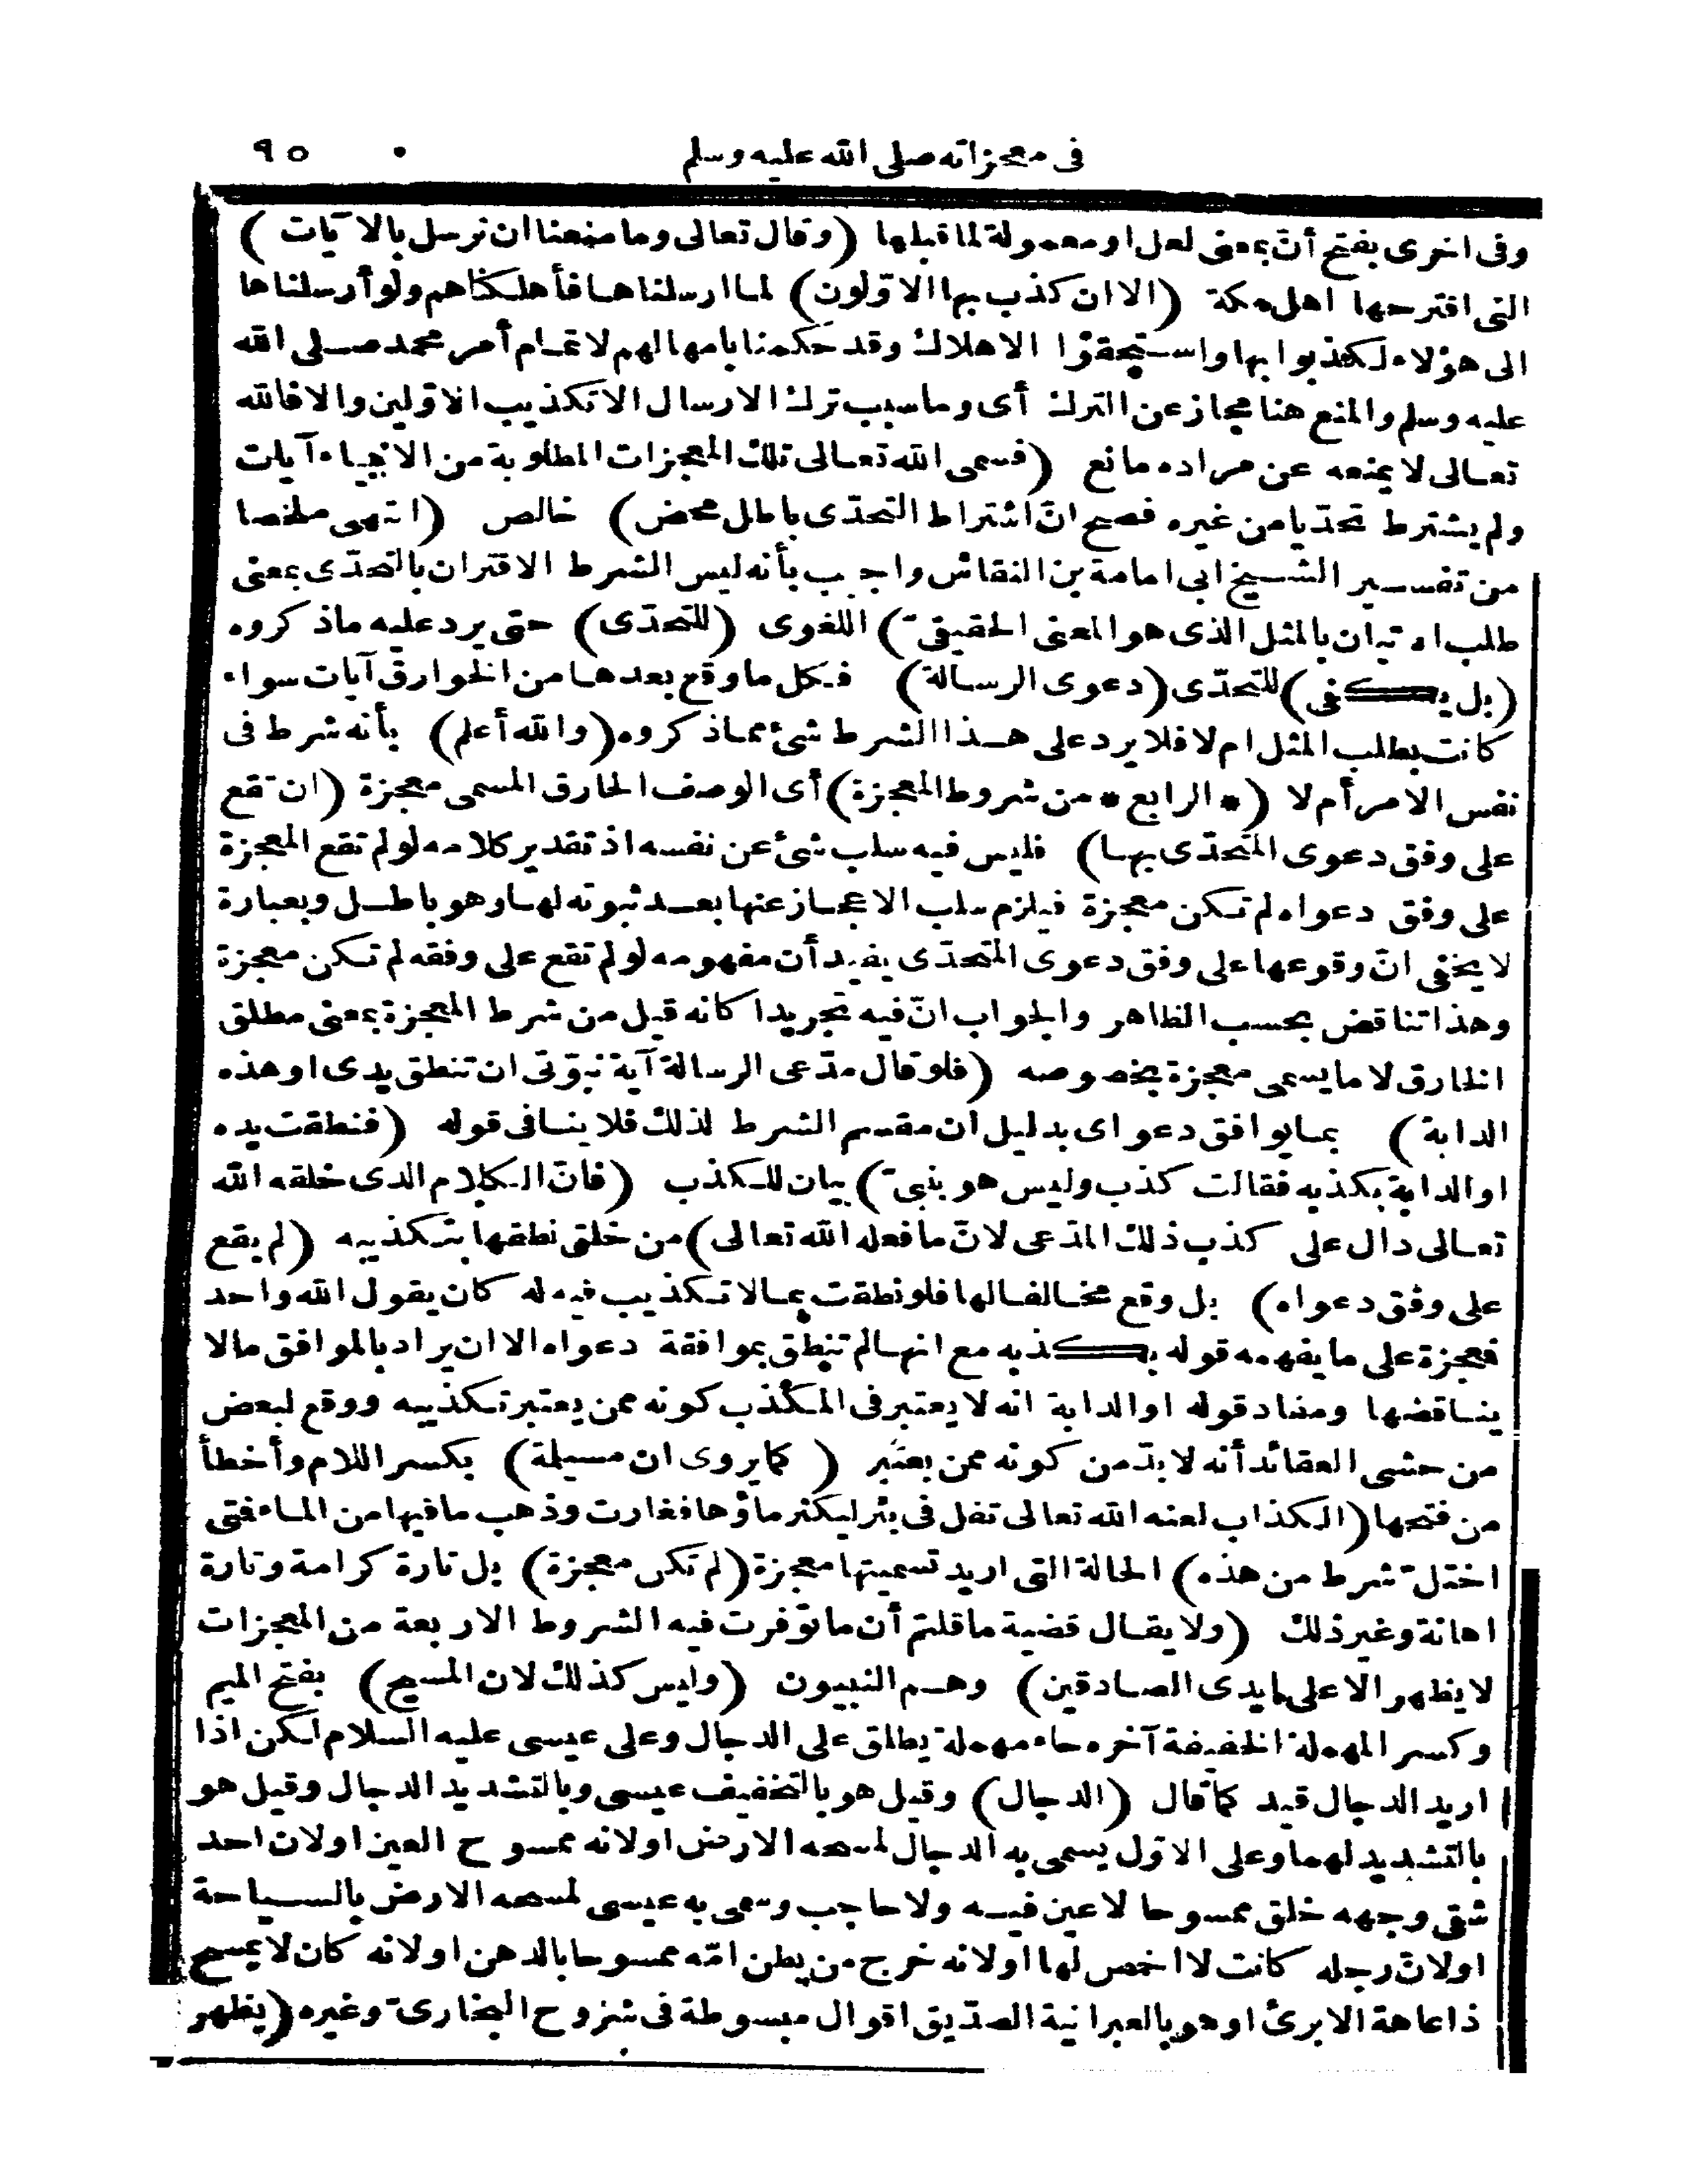 فى معجزاته صلى الله عليه وسلم ٩٥
وفى اخرى بفتح أنّ بمعنى لعل او معمولة لما قبلها (وقال تعالى وما منعنا ان نرسل بالآيات)
التى اقترحها اهل مكة (الا ان كذب بها الاوّلون) لما ارسلناها فأهلكناهم ولو أرسلناها
الى هؤلاء لكذبوا بها واستحقوا الاهلاك وقد حكمنا بامهالهم لاتمام أمر محمد صلى الله
عليه وسلم والمنع هنا مجاز عن الترك أى وما سبب ترك الارسال الا تكذيب الاوّلين والا فالله
تعالى لا يمنعه عن مراده مانع (فسمى الله تعالى تلك المعجزات المطلوبة من الانبياء آيات
ولم يشترط تحدّيا من غيره فصح انّ اشتراط التحدّى باطل محض) خالص (انتهى ملخصا
من تفسير الشيخ ابى امامة بن النقاش واجيب بأنه ليس الشرط الاقتران بالتحدّى بمعنى
طلب الاتيان بالمثل الذى هو المعنى الحقيقىّ) اللغوى (للتحدّى) حتى يرد عليه ما ذكروه
(بل يكفى) للتحدّى (دعوى الرسالة) فكل ما وقع بعدها من الخوارق آيات سواء
كانت بطلب المثل ام لا فلا يرد على هذا الشرط شئ مما ذكروه (والله أعلم) بأنه شرط فى
نفس الامر أم لا (* الرابع * من شروط المعجزة) أى الوصف الخارق المسمى معجزة (ان تقع
على وفق دعوى المتحدّى بها) فليس فيه سلب شئ عن نفسه اذ تقدير كلامه لو لم تقع المعجزة
على وفق دعواه لم تكن معجزة فيلزم سلب الاعجاز عنها بعد ثبوته لها وهو باطل وبعبارة
لا يخفى انّ وقوعها على وفق دعوى المتحدّى يفيد أن مفهومه لو لم تقع على وفقه لم تكن معجزة
وهذا تناقض بحسب الظاهر والجواب انّ فيه تجريدا كانه قيل من شرط المعجزة بمعنى مطلق
الخارق لا ما يسمى معجزة بخصوصه (فلو قال مدّعى الرسالة آية نبوّتى ان تنطق يدى او هذه
الدابة) بما يوافق دعواى بدليل ان مقسم الشرط لذلك فلا ينافى قوله (فنطقت يده
او الدابة بكذبه فقالت كذب وليس هو بنبىّ) بيان للكذب (فانّ الكلام الذى خلقه الله
تعالى دال على كذب ذلك المدّعى لانّ ما فعله الله تعالى) من خلق نطقها بتكذيبه (لم يقع
على وفق دعواه) بل وقع مخالفا لها فلو نطقت بما لا تكذيب فيه له كان يقول الله واحد
فمعجزة على ما يفهمه قوله بكذبه مع انها لم تنطق بموافقة دعواه الا ان يراد بالموافق ما لا
يناقضها ومفاد قوله او الدابة انه لا يعتبر فى المكذب كونه ممن يعتبر تكذيبه ووقع لبعض
من حشى العقائد أنه لا بدّ من كونه ممن يعتبر (كما يروى ان مسيلمة) بكسر اللام وأخطأ
من فتحها (الكذاب لعنه الله تعالى تفل فى بئر ليكثر ماؤها فغارت وذهب ما فيها من الماء فمتى
اختل شرط من هذه) الحالة التى اريد تسميتها معجزة (لم تكن معجزة) بل تارة كرامة وتارة
اهانة وغير ذلك (ولا يقال قضية ما قلتم أن ما توفرت فيه الشروط الاربعة من المعجزات
لا يظهر الا على ايدى الصادقين) وهم النبيون (وليس كذلك لان المسيح) بفتح الميم
وكسر المهملة الخفيفة آخره حاء مهملة يطلق على الدجال وعلى عيسى عليه السلام لكن اذا
اريد الدجال قيد كما قال (الدجال) وقيل هو بالتخفيف عيسى وبالتشديد الدجال وقيل هو
بالتشديد لهما وعلى الاوّل يسمى به الدجال لمسحه الارض او لانه ممسوح العين او لان احد
شقى وجهه خلق ممسوحا لا عين فيه ولا حاجب وسمى به عيسى لمسحه الارض بالسياحة
او لانّ رجله كانت لا اخمص لها او لانه خرج من بطن امّه ممسوحا بالدهن او لانه كان لا يمسح
ذا عاهة الا برئ او هو بالعبرانية الصدّيق اقوال مبسوطة فى شروح البخارىّ وغيره (يظهر